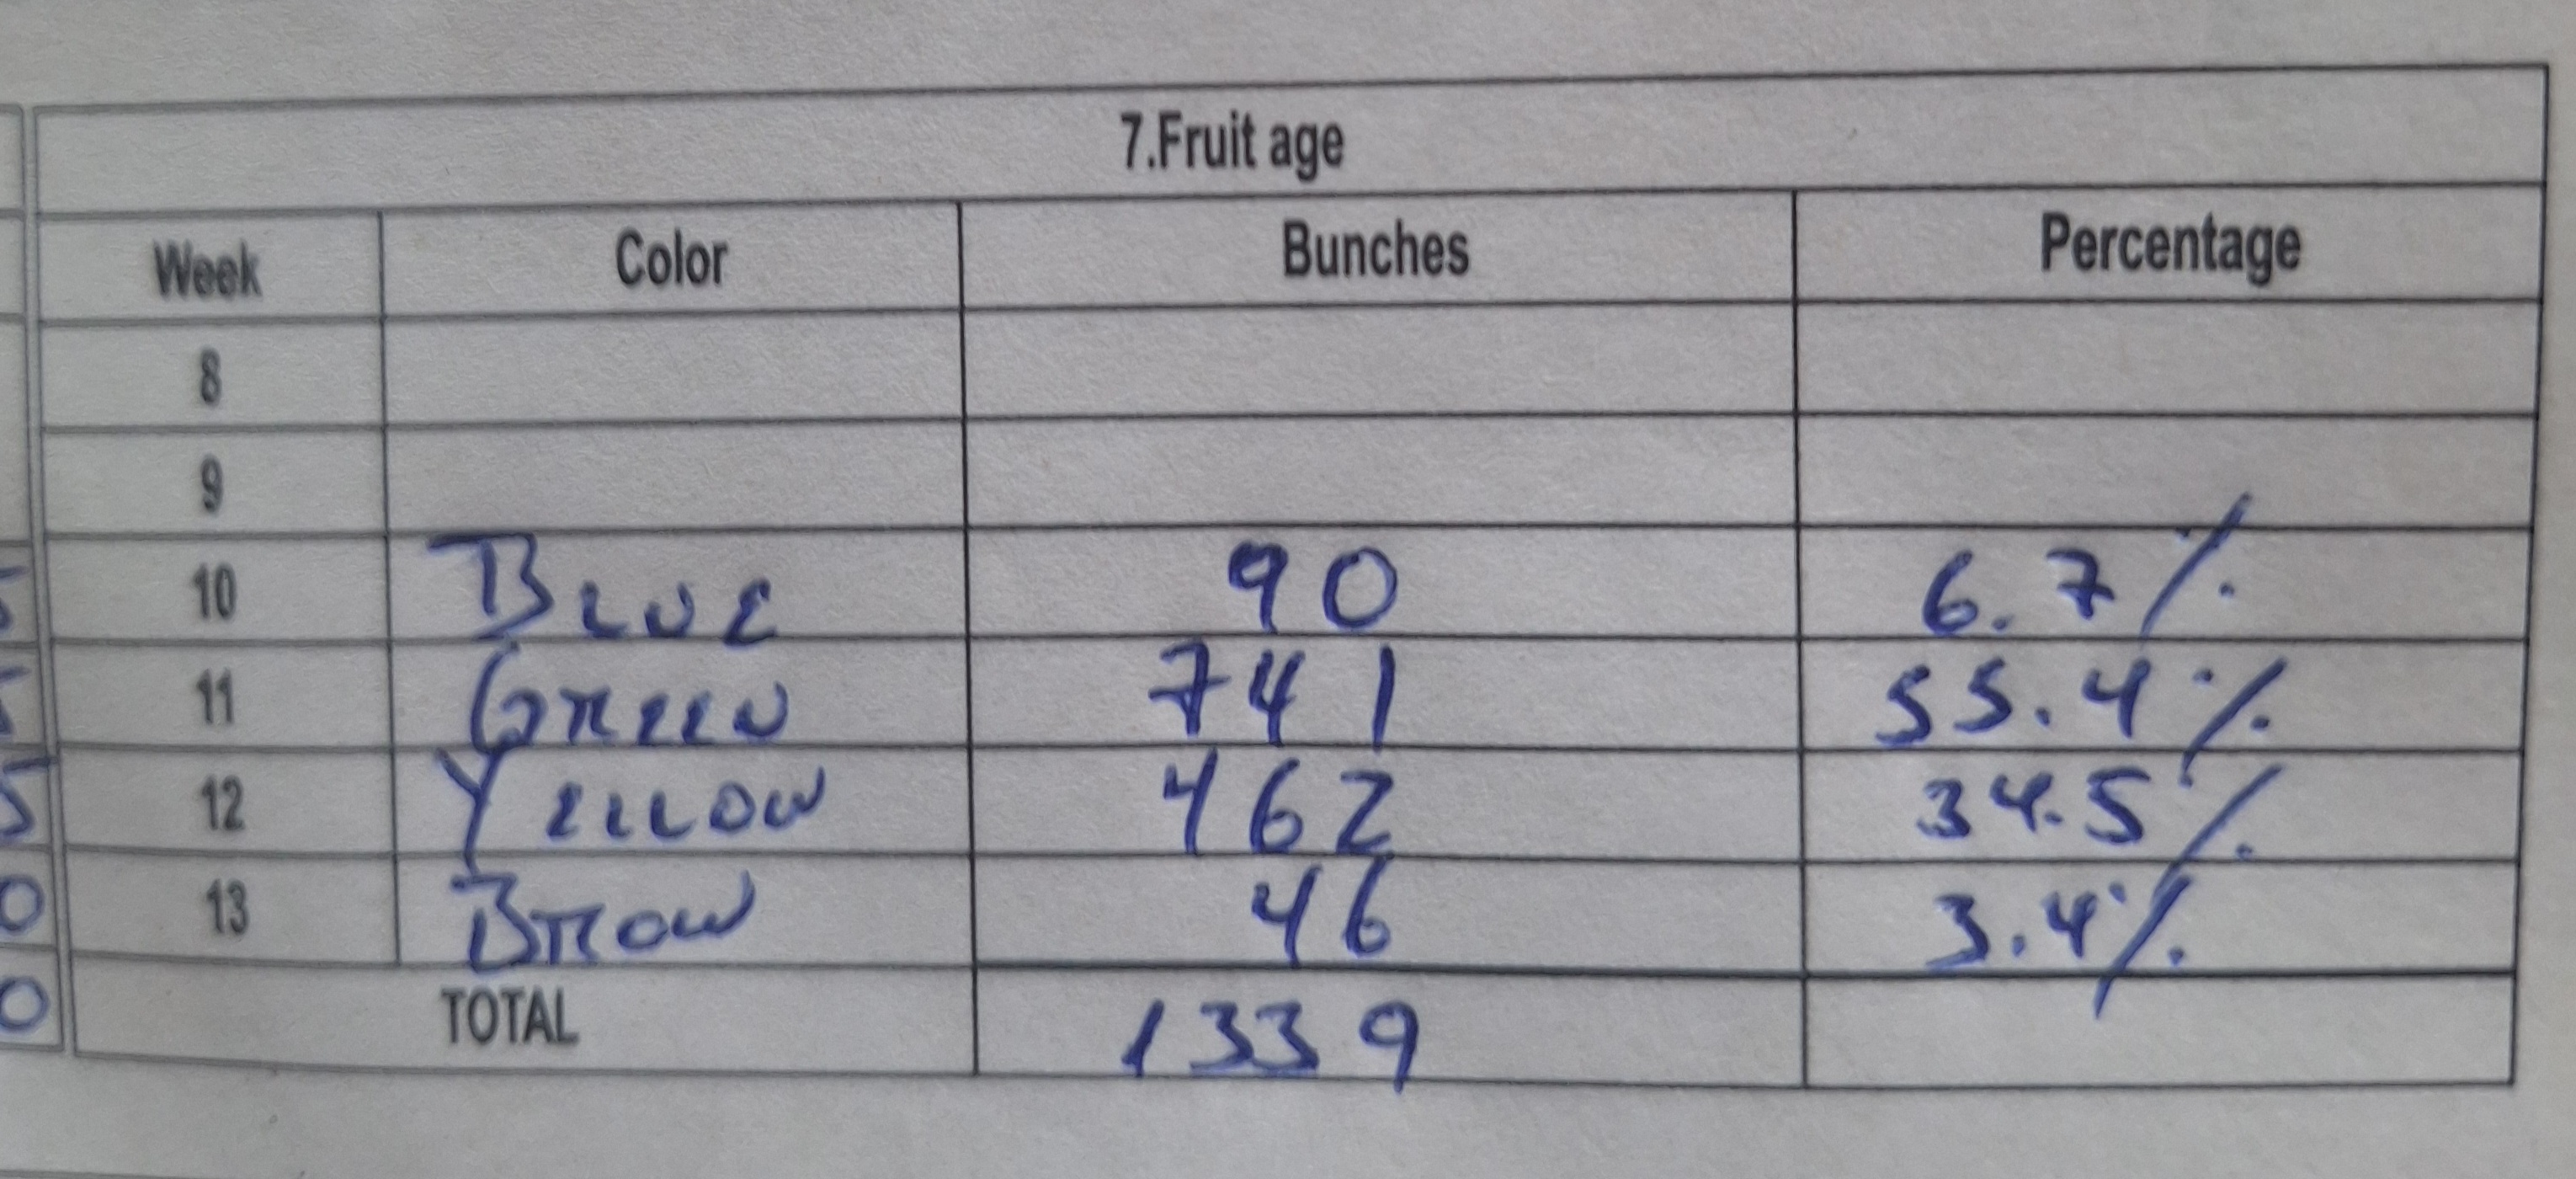 7.Fruit age
Week Color Bunches Percentage
8
9
10 BLUE 90 6.7%
11 GREEN 741 55.4%
12 YELLOW 462 34.5%
13 BROW 46 3.4%
TOTAL 1339
5
5
5
0
0